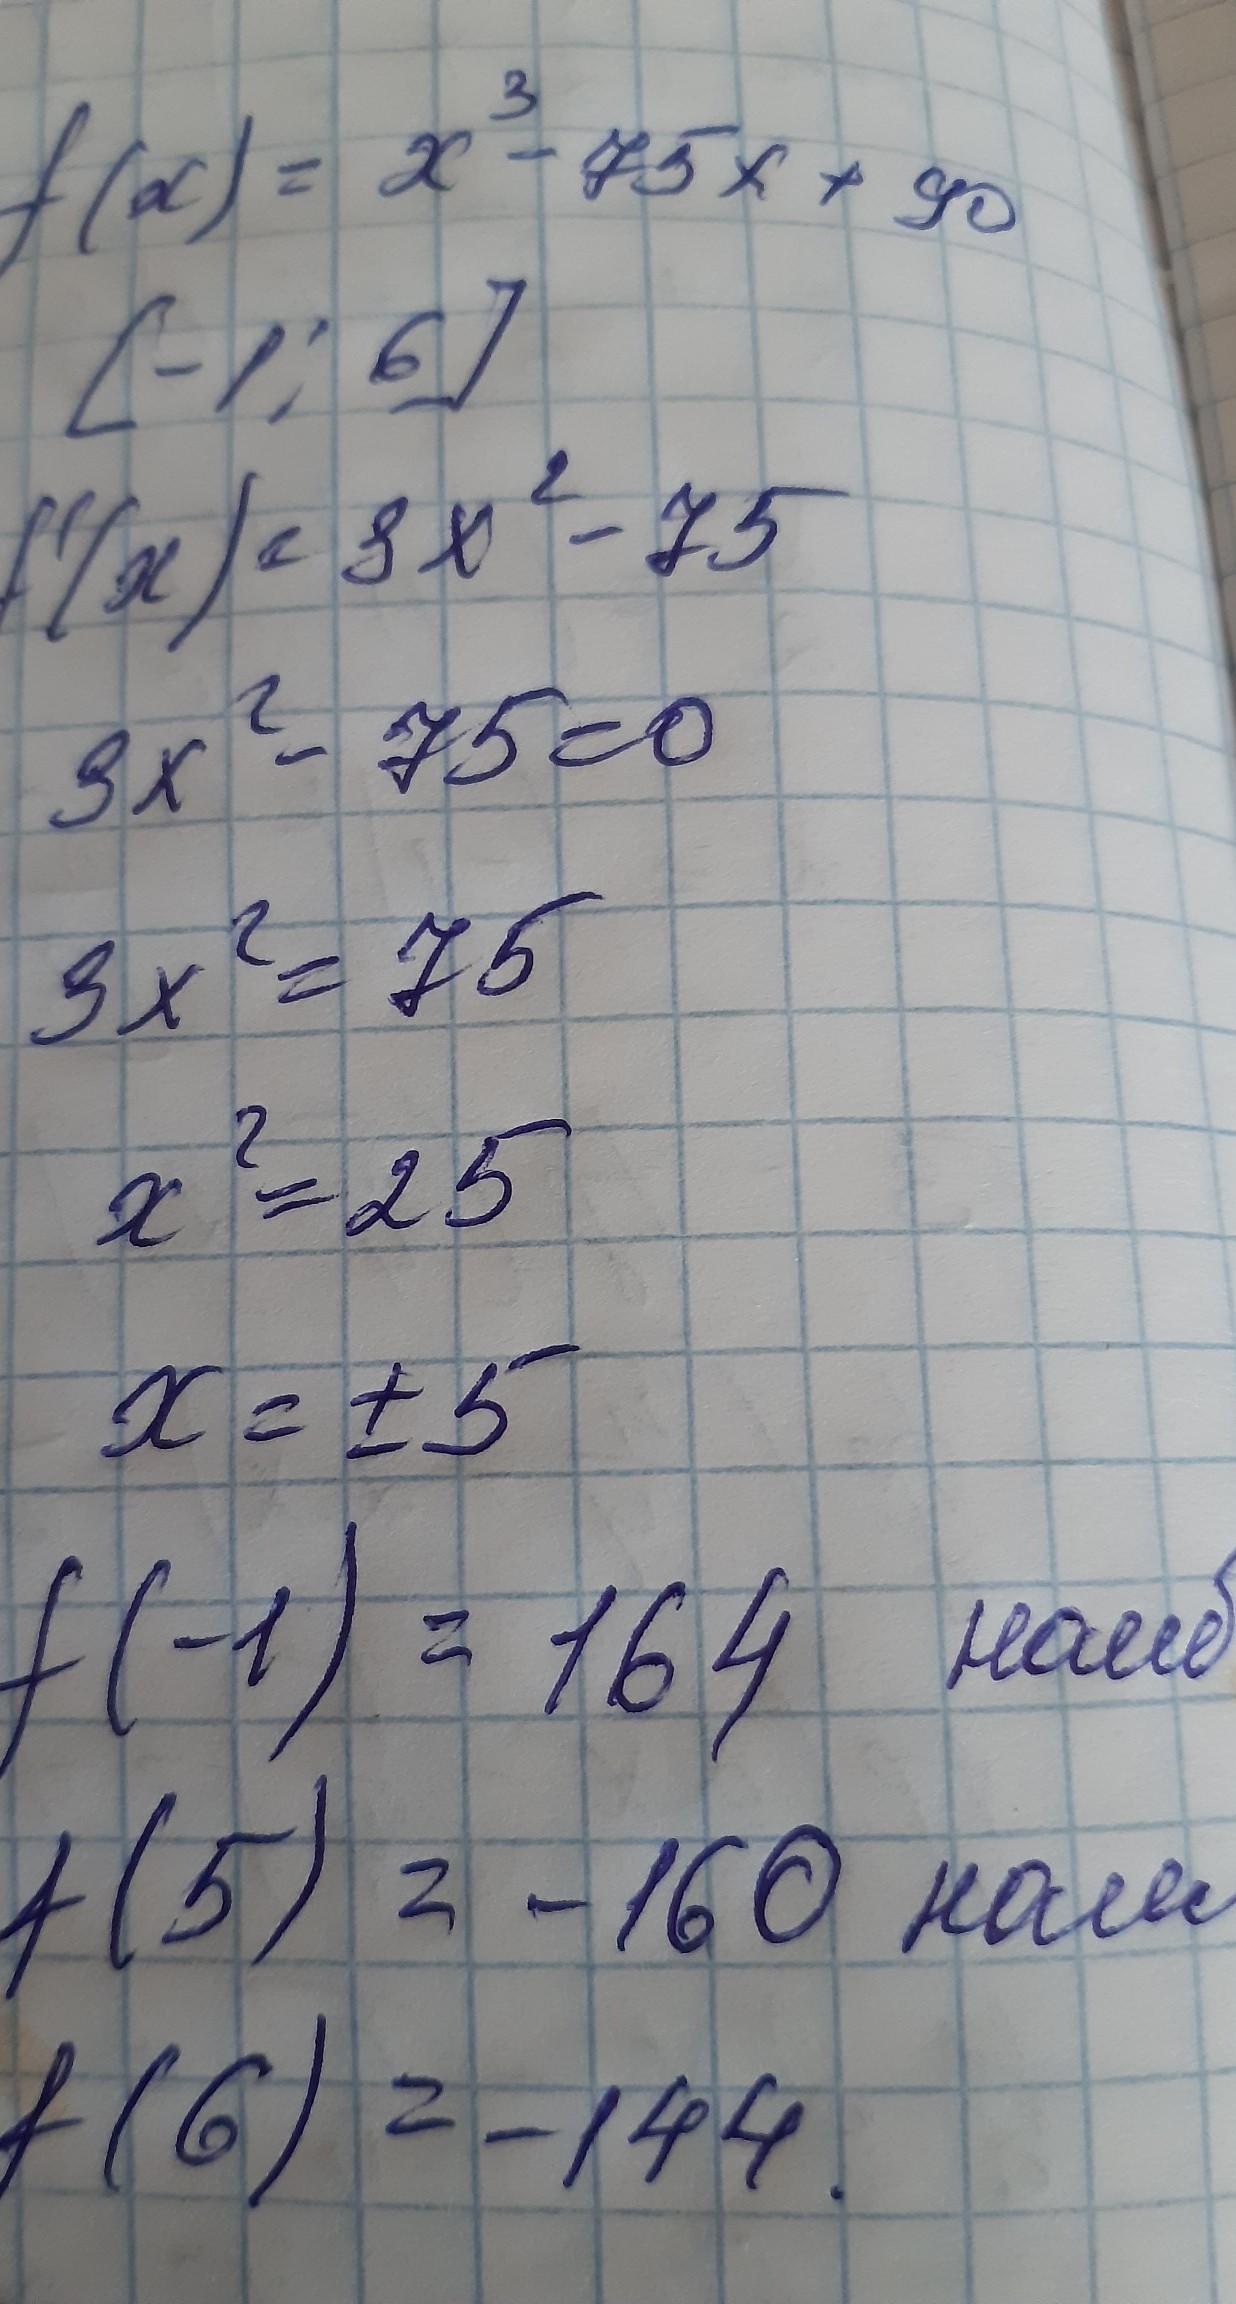 f(x) = x³ - 75x + 90
[-1; 6]
f'(x) = 3x² - 75
3x² - 75 = 0
3x² = 75
x² = 25
x = ±5
f(-1) = 164 наиб
f(5) = -160 наи
f(6) = -144.